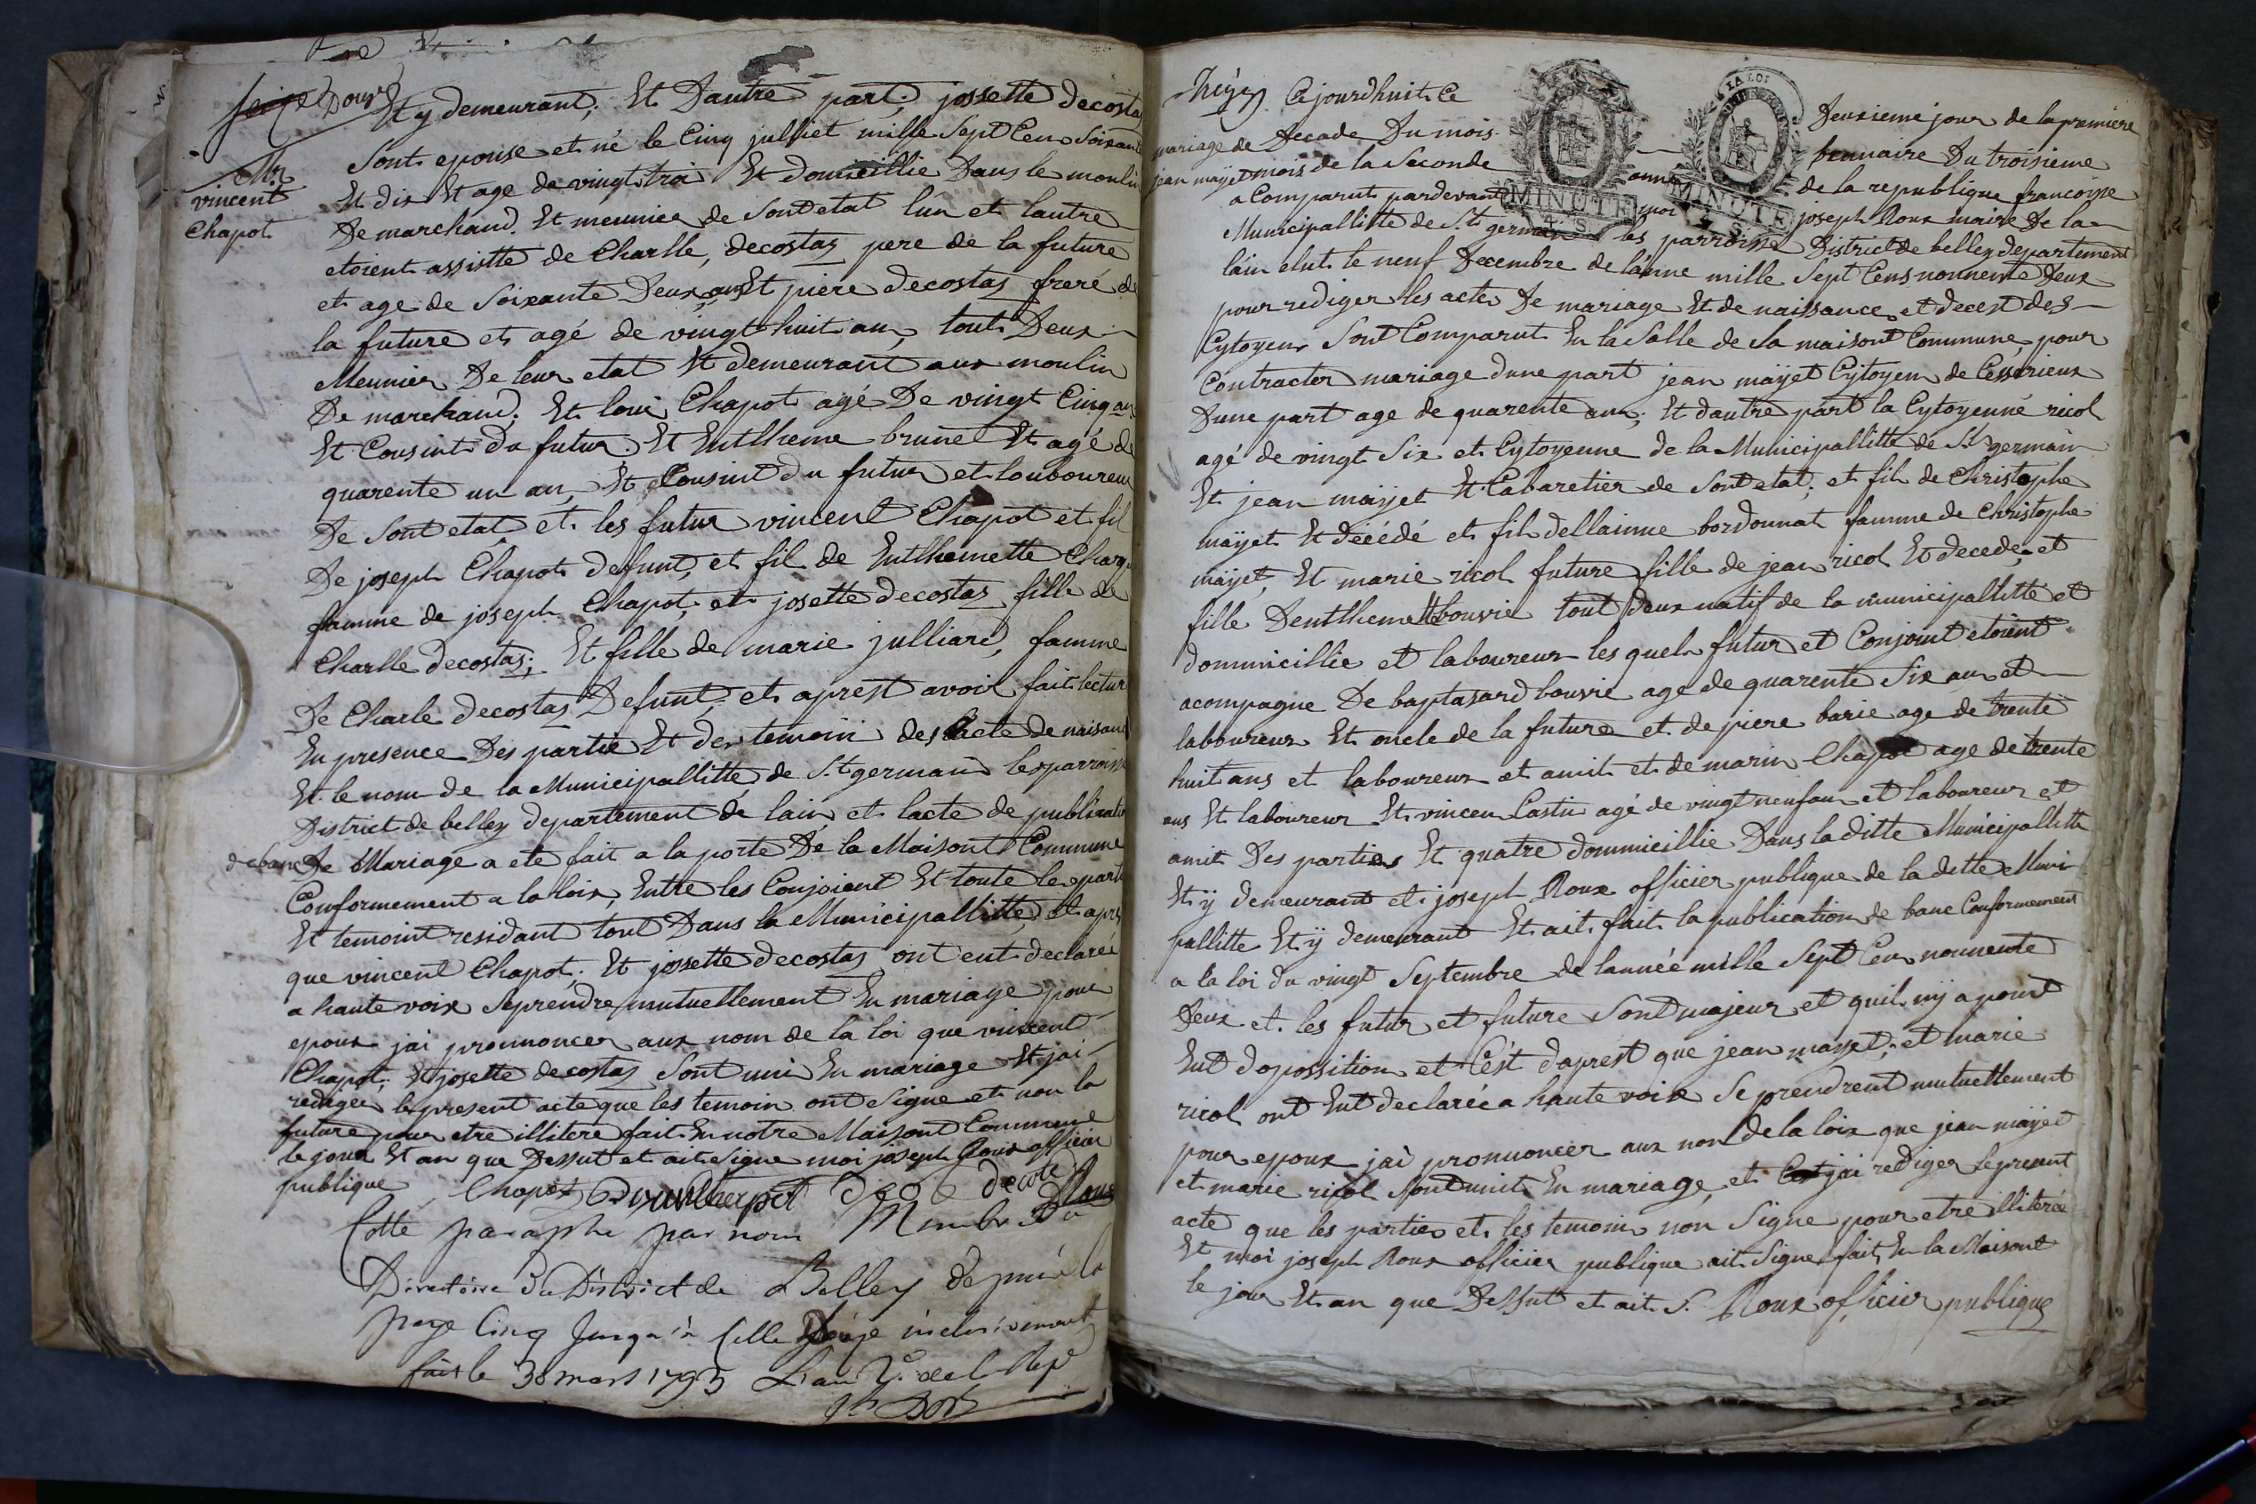 Douze
Mr
vincent
Chapot
Et y demeurant, Et Dautre part, jossette decostaz
Sont epouse et né le Cinq julliet mille Sept Cens Soixante
Et dix Et age de vingt troi Et domicillie Dans le moulin
De marchand Et meunier de Sont etat lun et lautre
etoient assistte de Charlle, decostaz pere de la future
et age de Soixante Deux ans Et piere decostaz frere de
la future et agé de vingt huit ans, tout Deux
Meunier De leur etat Et demeurant aux moulin
De marchand, Et loui Chapot agé De vingt Cinq ans
Et Cousint du futur Et Entlheme brunet Et agé de
quarente un an, Et Cousint du futur et laboureur
De Sont etat et les futur vincent Chapot et fil
De joseph Chapot defunt, et fil de Entlhemette
famme de joseph Chapot et josette decostaz fille de
Charlle decostaz; Et fille de marie julliard, famme
De Charle decostaz Defunt, et aprest avoir fait lectur
En presence Des partie Et des temoin des acte de naisance
Et le nom de la Municipallitte de St germain lesparroisse
District de belley departement de lain et lacte de publication
de banc De Mariage a ete fait a la porte De la Maisont Commune
Conformement a la loix, Entre les Conjoient Et toute les parti
Et temoint residant tout Dans la Municipallitte, Et apres
que vincent Chapot, Et jossette decostaz ont eut declarée
a haute voix Seprendre mutuellement En mariage pour
epoux jai prononcer aux nom de la loi que vincent
Chapot, Et josette decostaz Sont uni En mariage Et jai
rediger le present acte que les temoin ont Signe et non la
future pour etre illitere fait En notre Maisont Commune
le jour Et an que Dessut et ait Signe moi joseph Roux officier
publique Chapot decote Roux
Cotté paraphé par nous Membre Du
Directoire Du District de Belley depuis la
page Cinq Jusqu'à Celle inclusivement
fait le 30 mars 1793 L'an 2e de la Repe
mariage de
jean mayet
Ce jourdhuit Ce Deuxieme jour de la premiere
Decade Du mois brumaire Du troisieme
mois de la Seconde anne de la republique francoise
a Comparut pardevant moi joseph Roux maire De la
Municipallitte de St germain les parroisse District de belley departement
lain elut le neuf Decembre de lanne mille Sept Cens nonnente Deux
pour rediger les acte De mariage Et de naissance et decest des
Cytoyen Sont Comparut En la Salle de la maisont Commune, pour
Contracter mariage dune part jean mayet Cytoyen de Ceyzrieux
Dune part age de quarente ans; Et dautre part la Cytoyenne ricol
agé de vingt Six et Cytoyenne de la Municipallitte de St germain
Et jean mayet Et Cabaretier de Sont etat; et fil de Christophe
mayet Et décédé et fil dellainne bordonnat famme de Christophe
mayet, Et marie ricol future fille de jean ricol Et decede, et
fille Dentlhemette bouvie tout deux natif de la municipallitte et
dommicillie et laboureur les quels futur et Conjoint etoient
acompagne De baptasard bouvie age de quarente Six ans et
laboureur Et oncle de la future et de piere barie age de trente
huit ans et laboureur et amit et de marin Chapot age de trente
ans Et laboureur Et vincen Castin agé de vingt neuf an et laboureur et
amit Des parties Et quatre dommicillie Dans la ditte Municipallitte
Et y demeurant et joseph Roux officier publique de la ditte Muni
pallitte Et y demeurant Et ait fait la publication de banc Conformement
a la loi du vingt Septembre de lannée mille Sept Cens nonnente
Deux et les futur et future Sont majeur et quil ny a point
Eut dopossition et Cest daprest que jean mayet; et marie
ricol ont Eut declarée a haute voix Se prendrent mutuellement
pour epoux jai prononcer aux nom de la loix que jean mayet
et marie ricol Sont unit En mariage, et jai rediger le present
acte que les partie et les temoin non Signe pour etre illiterée
Et moi joseph Roux officier publique ait Signe fait En la Maisont
le jour Et an que Dessut et ait S. Roux officier publique
LA LOI
MINUTE
4 S
MINUTE